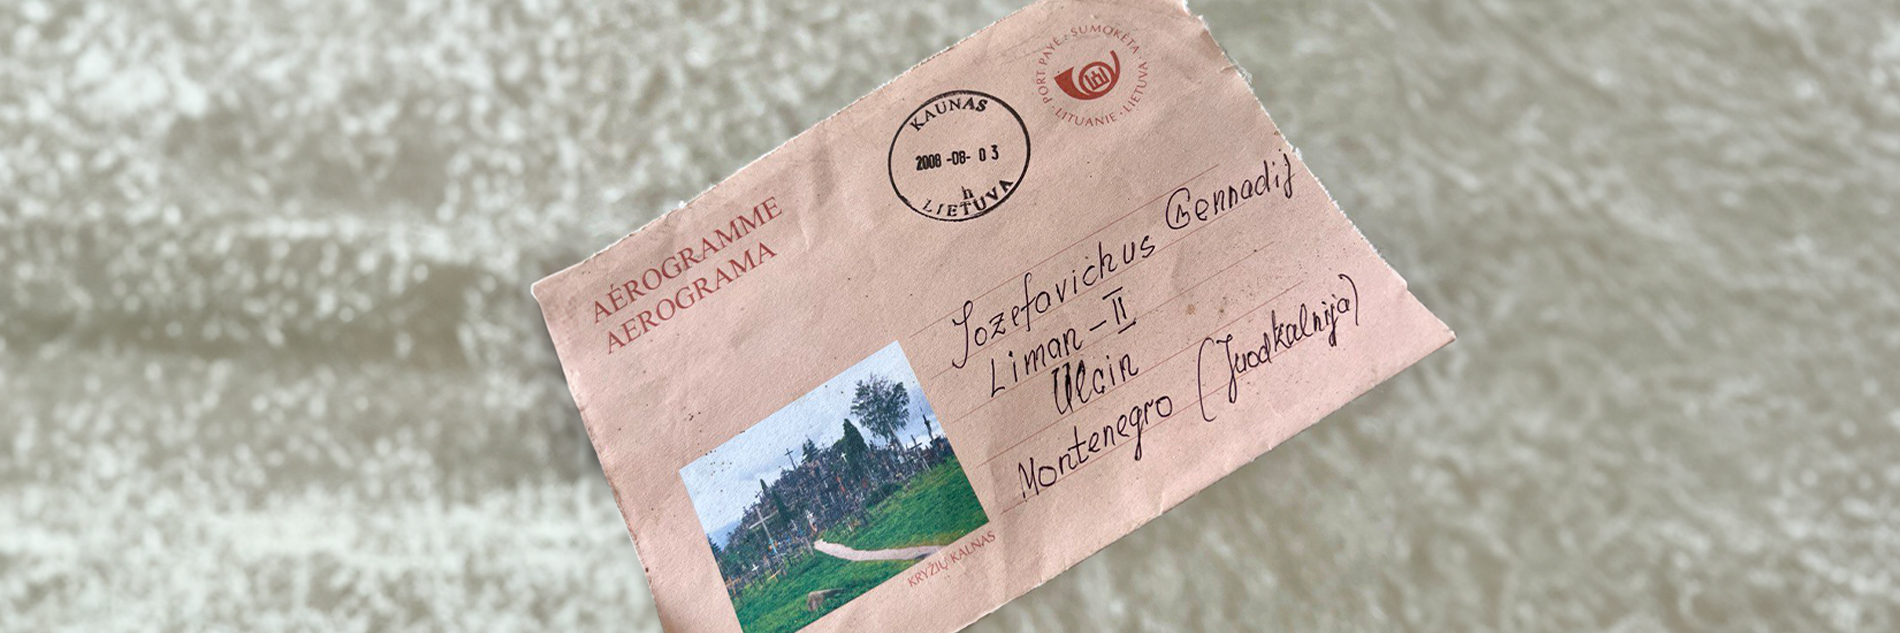 PORT PAYÉ · SUMOKĖTA
· LITUANIE · LIETUVA
KAUNAS
2008 -08- 03
h
LIETUVA
AÉROGRAMME
AEROGRAMA
Jozefavichus Gennadij
Liman - II
Ulcin
Montenegro (Juodkalnija)
KRYŽIŲ KALNAS